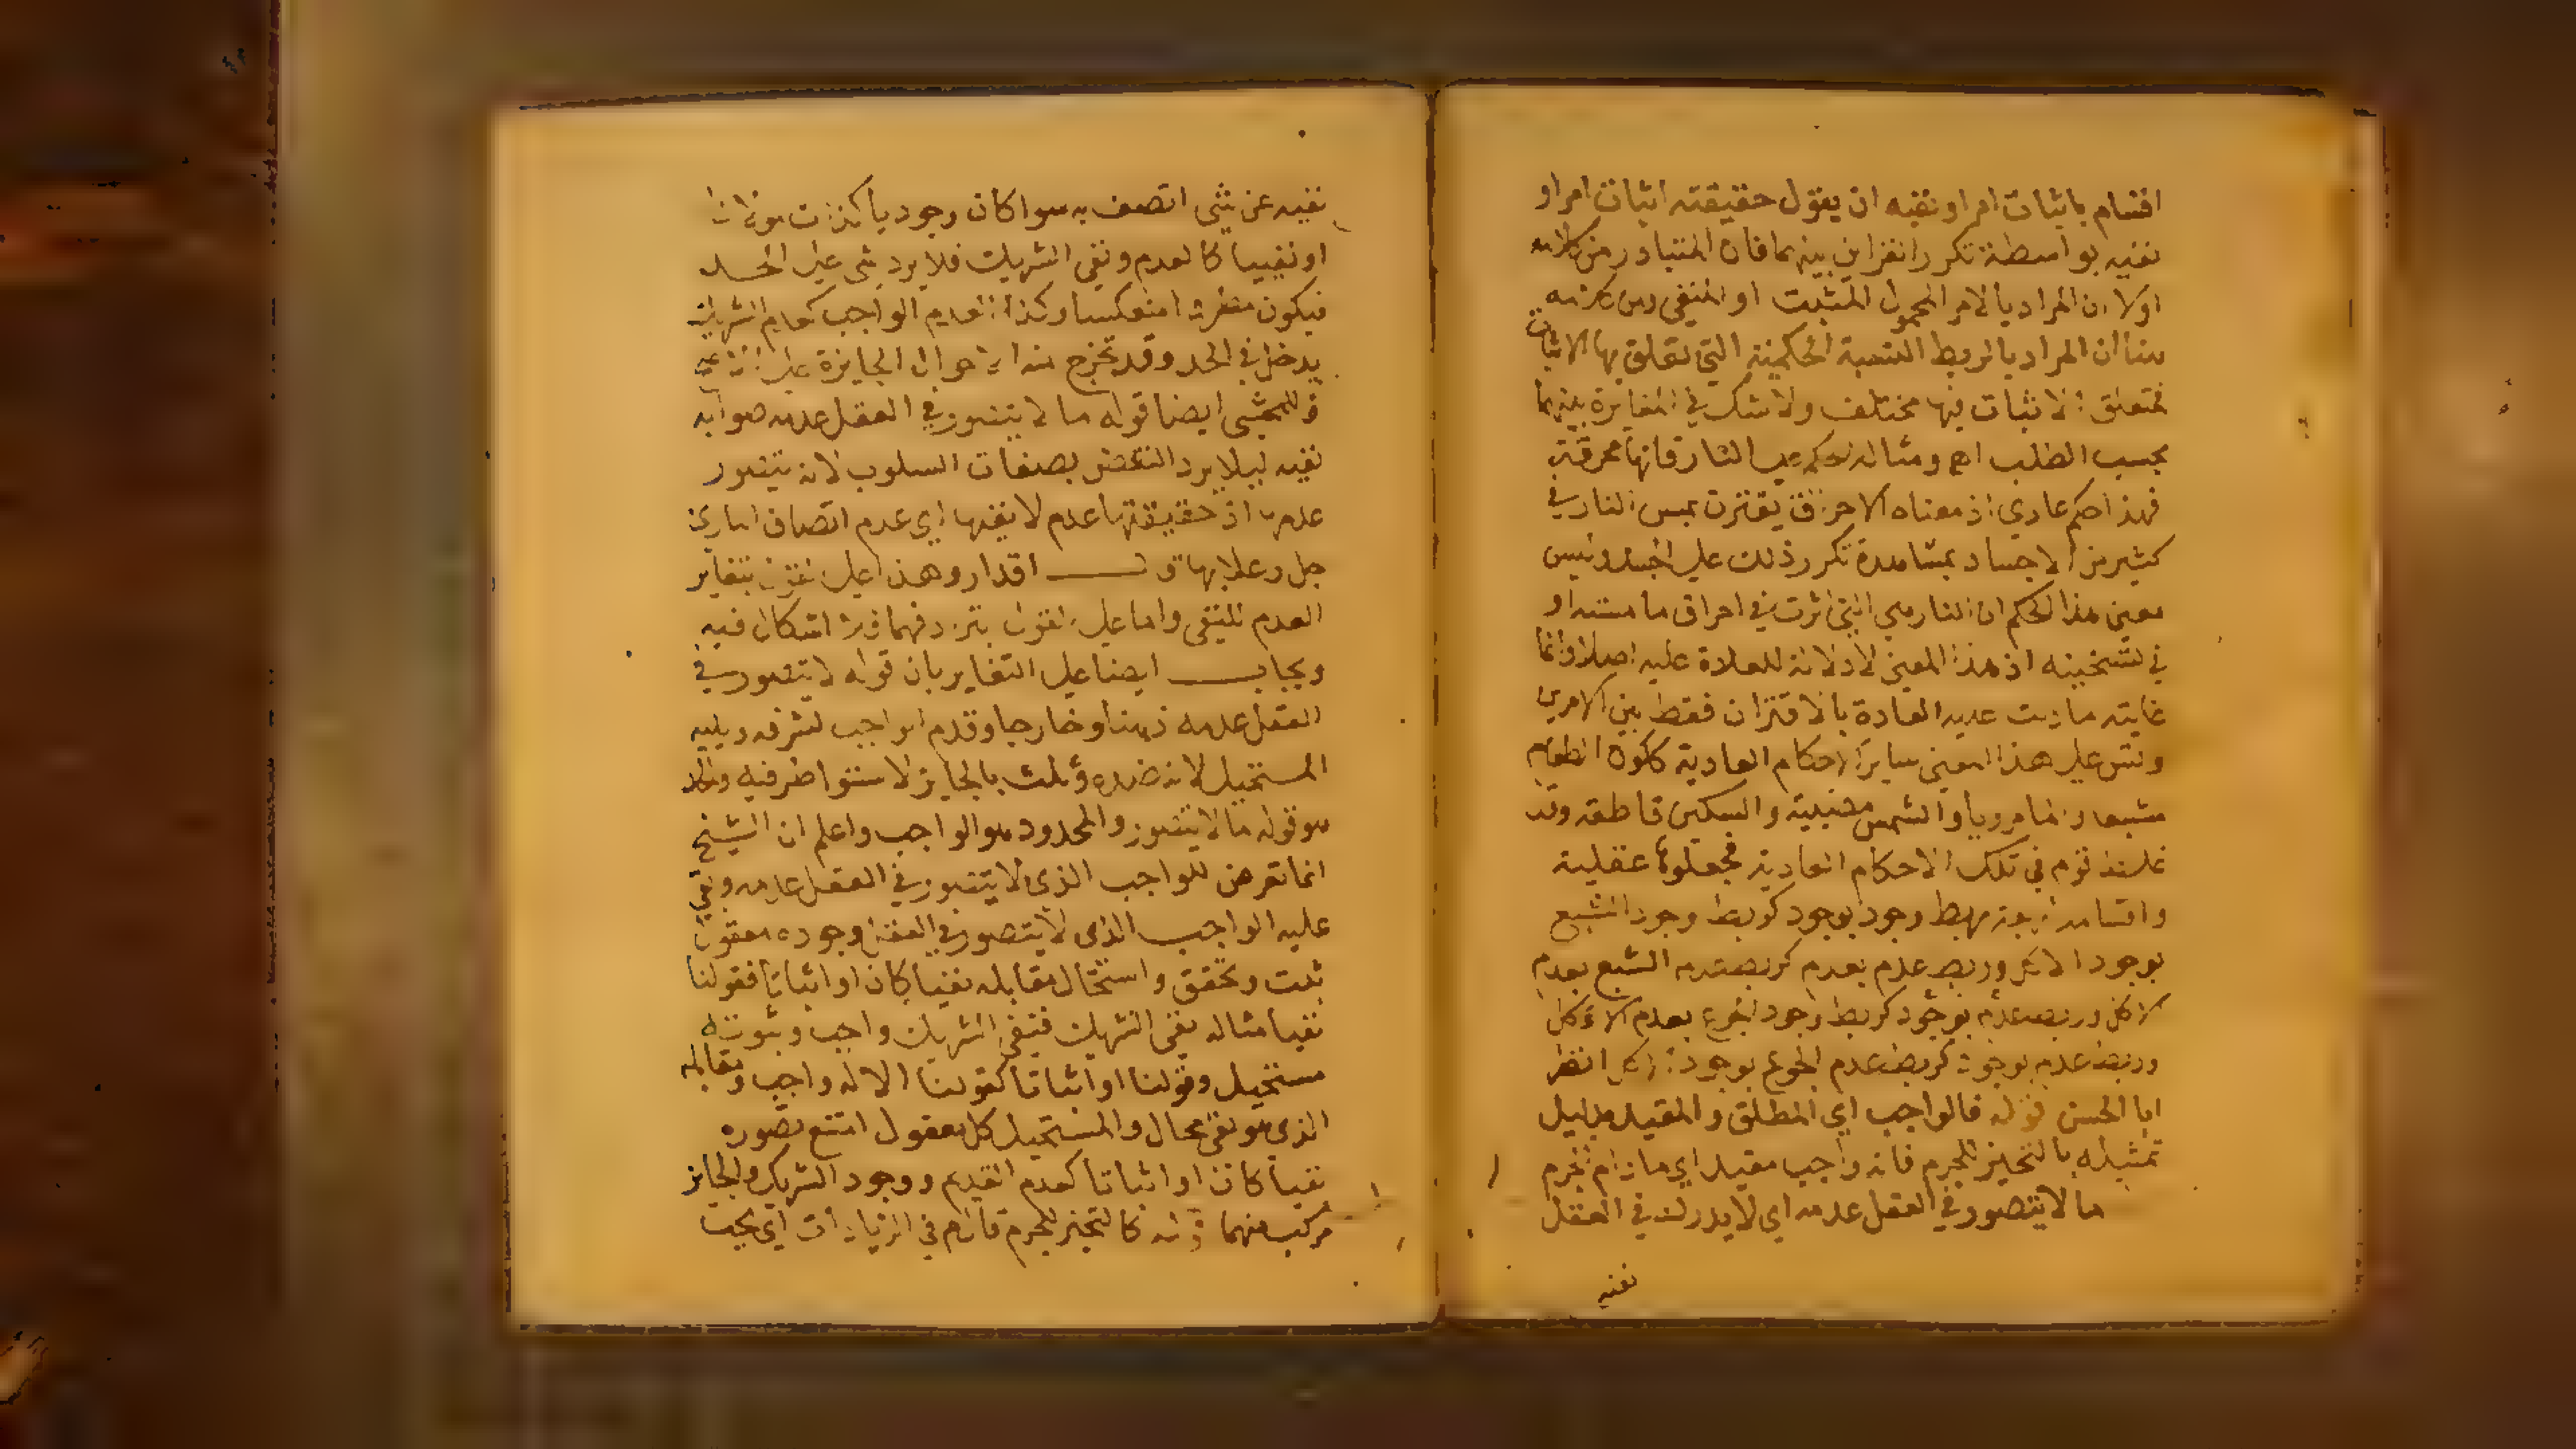 اقسام باثبات امر او نفيه ان يقول حقيقته اثبات امر او
نفيه بواسطة تكرر القران بينهما فان المتبادر من كلامه
اولا ان المراد بالامر المحمول المثبت او المنفي ومن كلامه
هنا ان المراد بالربط النسبة الحكمية التي تعلق بها الاثبات
فمتعلق الاثبات فيها مختلف ولا شك في المغايرة بينهما
بحسب الطلب اهـ ومثاله الحكم على النار فانها محرقة
فهذا حكم عادي اذ معناه الاحراق يقترن بمس النار في
كثير من الاجساد بمشاهدة تكرر ذلك على الحس وليس
معنى هذا الحكم ان النار هي التي اثرت في احراق ما مسته او
في تسخينه اذ هذا المعنى لا دلالة للعادة عليه اصلا وانما
غاية ما دلت عليه العادة بالاقتران فقط بين الامرين
وقس على هذا المعنى ساير الاحكام العادية ككون الطعام
مشبعا والما مرويا والشمس مضيئة والسكين قاطعة وقد
غلط قوم في تلك الاحكام العادية فجعلوها عقلية
واقسامه اربعة ربط وجود بوجود كربط وجود الشبع
بوجود الاكل وربط عدم بعدم كربط عدم الشبع بعدم
الاكل وربط عدم بوجود كربط وجود الجوع بعدم الاكل
وربط عدم بوجود كربط عدم الجوع بوجود الاكل انظر
ابا الحسن قوله فالواجب اي المطلق والمقيد بدليل
تمثيله بالتحيز للجرم فانه واجب مقيد اي ما دام الجرم
ما لا يتصور في العقل عدمه اي لا يدرك في العقل
نفيه
نفيه عن شي اتصف به سوا كان وجوديا كذات مولانا
او نفييا كالعدم ونفي الشريك فلا يرد شي على الحد
فيكون مطردا منعكسا وكذا العدم الواجب كعدم الشريك
يدخل في الحد وقد تخرج منه الاحوال الجايزة على
للمحشي ايضا قوله ما لا يتصور في العقل عدمه صوابه
نفيه ليلا يرد النقض بصفات السلوب لانه يتصور
عدمها اذ حقيقتها عدم لا نفيها اي عدم اتصاف الباري
جل وعلا بها اقدار وهذا على القول بتغاير
العدم للنفي واما على القول بترادفهما فلا اشكال فيه
ويجاب ايضا على التغاير بان قوله لا يتصور في
العقل عدمه ذهنا وخارجا وقدم الواجب لشرفه ويليه
المستحيل لانه ضده وثلث بالجايز لاستوا طرفيه والحد
هو قوله ما لا يتصور والمحدود هو الواجب واعلم ان الشيخ
انما تعرض للواجب الذي لا يتصور في العقل عدمه وبقي
عليه الواجب الذي لا يتصور في العقل وجوده معقول
ثبت وتحقق واستحال مقابله نفيا كان او اثباتا فقولنا
نفيا مثاله نفي الشريك فنفي الشريك واجب وثبوته
مستحيل وقولنا او اثباتا كقولنا الاله واجب ومقابله
الذي هو نفي محال والمستحيل كل معقول امتنع تصوره
نفيا كان او اثباتا كعدم القديم ووجود الشريك والجايز
مركب منهما قوله كالتحيز للجرم قال م في الزيادات اي يجب